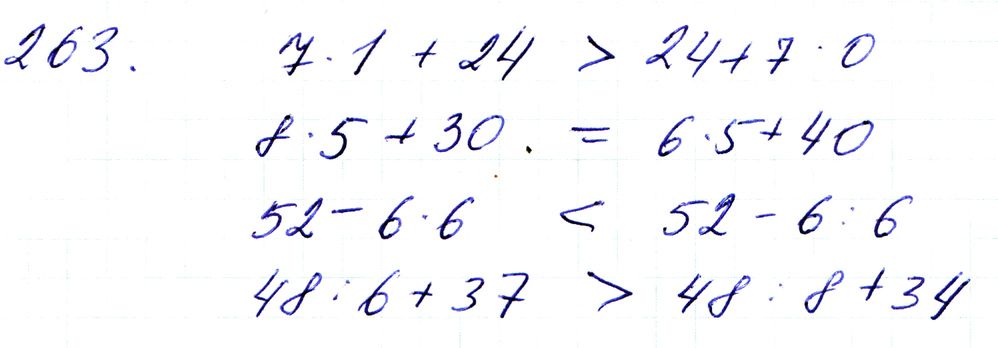 263. 7·1 + 24 > 24+7·0
8·5 + 30 . = 6·5+40
52 - 6·6 < 52 - 6:6
48:6 + 37 > 48:8 + 34